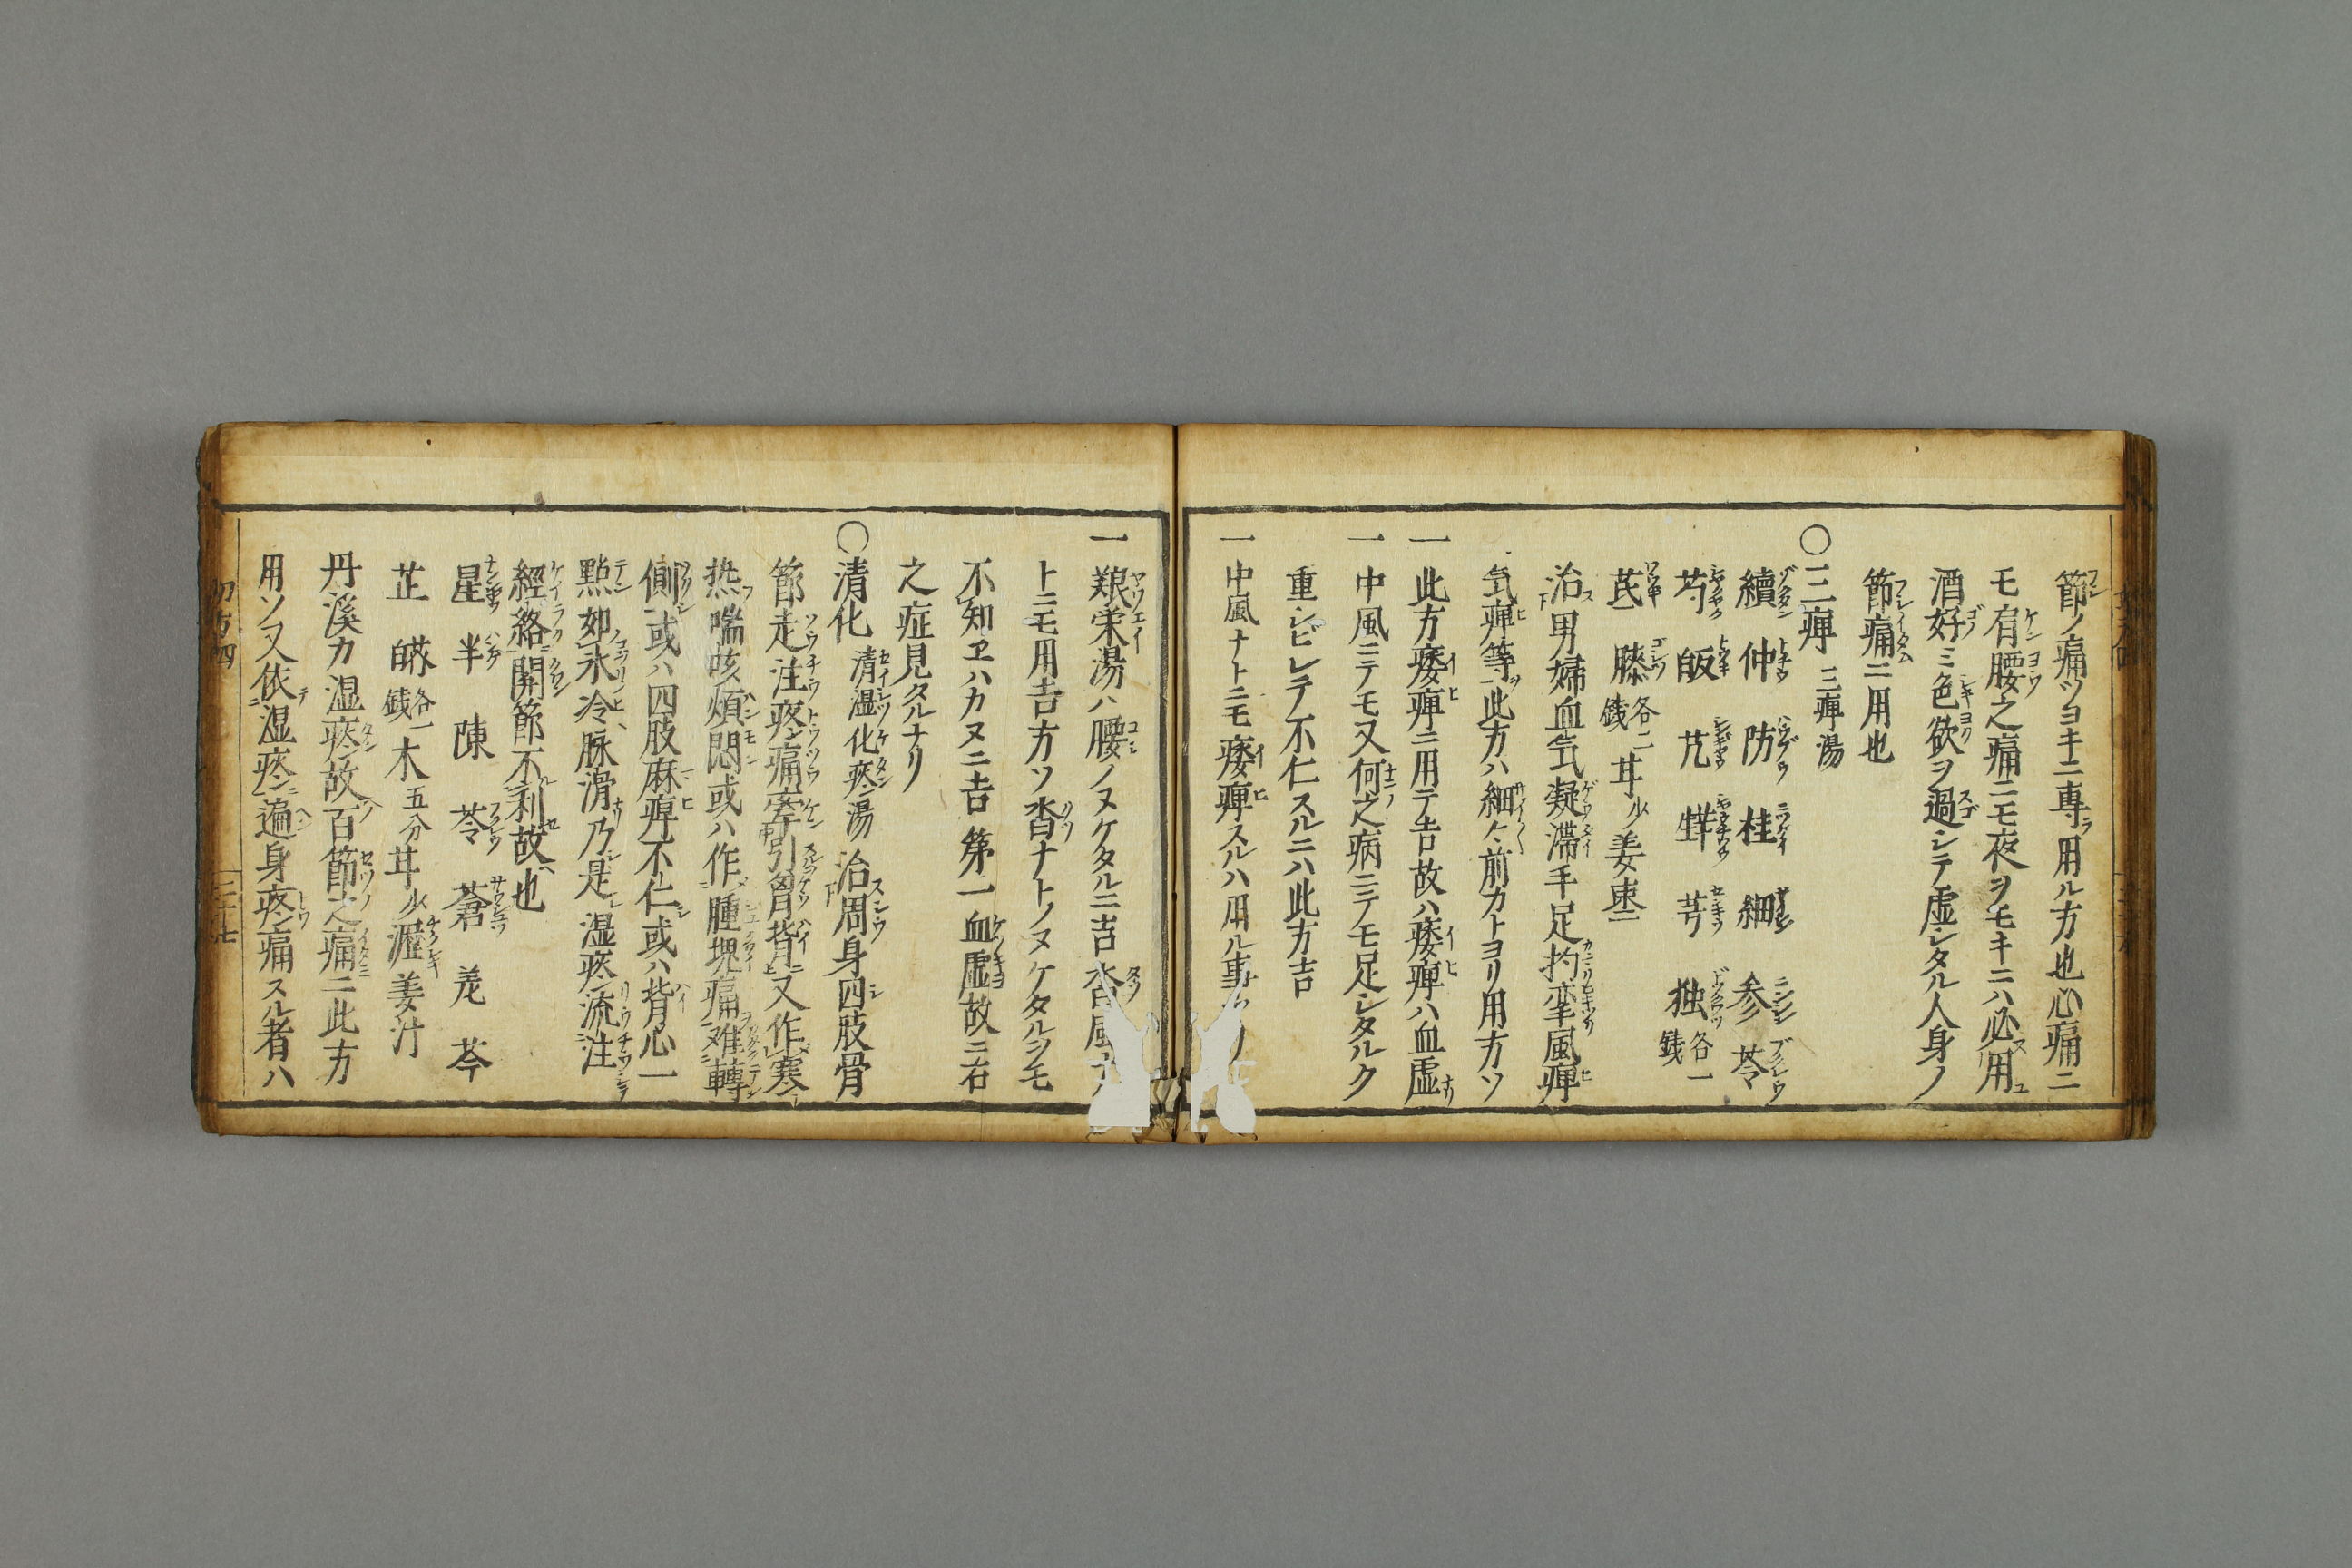 節ノ痛ツヨキニ専用ル方也心痛ニ
モ有腰之痛ニモ夜ヲモキニハ必用
酒好ミ色欲ヲ過シテ虚シタル人身ノ
節痛ニ用也
〇三痺 三痺湯
續 仲 防 桂 細 参 苓
芍 皈 艽 芎 独 各一銭
芪 膝 各二銭 甘少 姜 棗
治男婦血気凝滞手足拘挛風痺
気痺等此方ハ細々前カトヨリ用方ソ
一 此方痿痺ニ用テ吉故ハ痿痺ハ血虚
一 中風ニテモ又何之病ニテモ足シタルク
重シビレテ不仁スルニハ此方吉
一 中風ナトニモ痿痺スルハ用ル事
一 艱栄湯ハ腰ノヌケタルニ吉 沓風
トニモ用吉方ソ沓ナトノヌケタルシモ
不知ヱハカヌニ吉第一血虚故ニ右
之症見タルナリ
〇清化 清湿化痰湯 治周身四肢骨
節走注疼痛牽引胷背又作寒
热喘咳煩悶或ハ作腫塊痛难轉
側或ハ四肢麻痺不仁或ハ背心一
點如氷冷脉滑乃是湿痰流注
經絡関節不利故也
星 半 陳 苓 蒼 羗 芩
芷 各一銭 木五分 甘少 瀝 姜汁
丹溪カ湿痰故百節之痛ニ此方
用ソ又依湿痰遍身疼痛スル者ハ